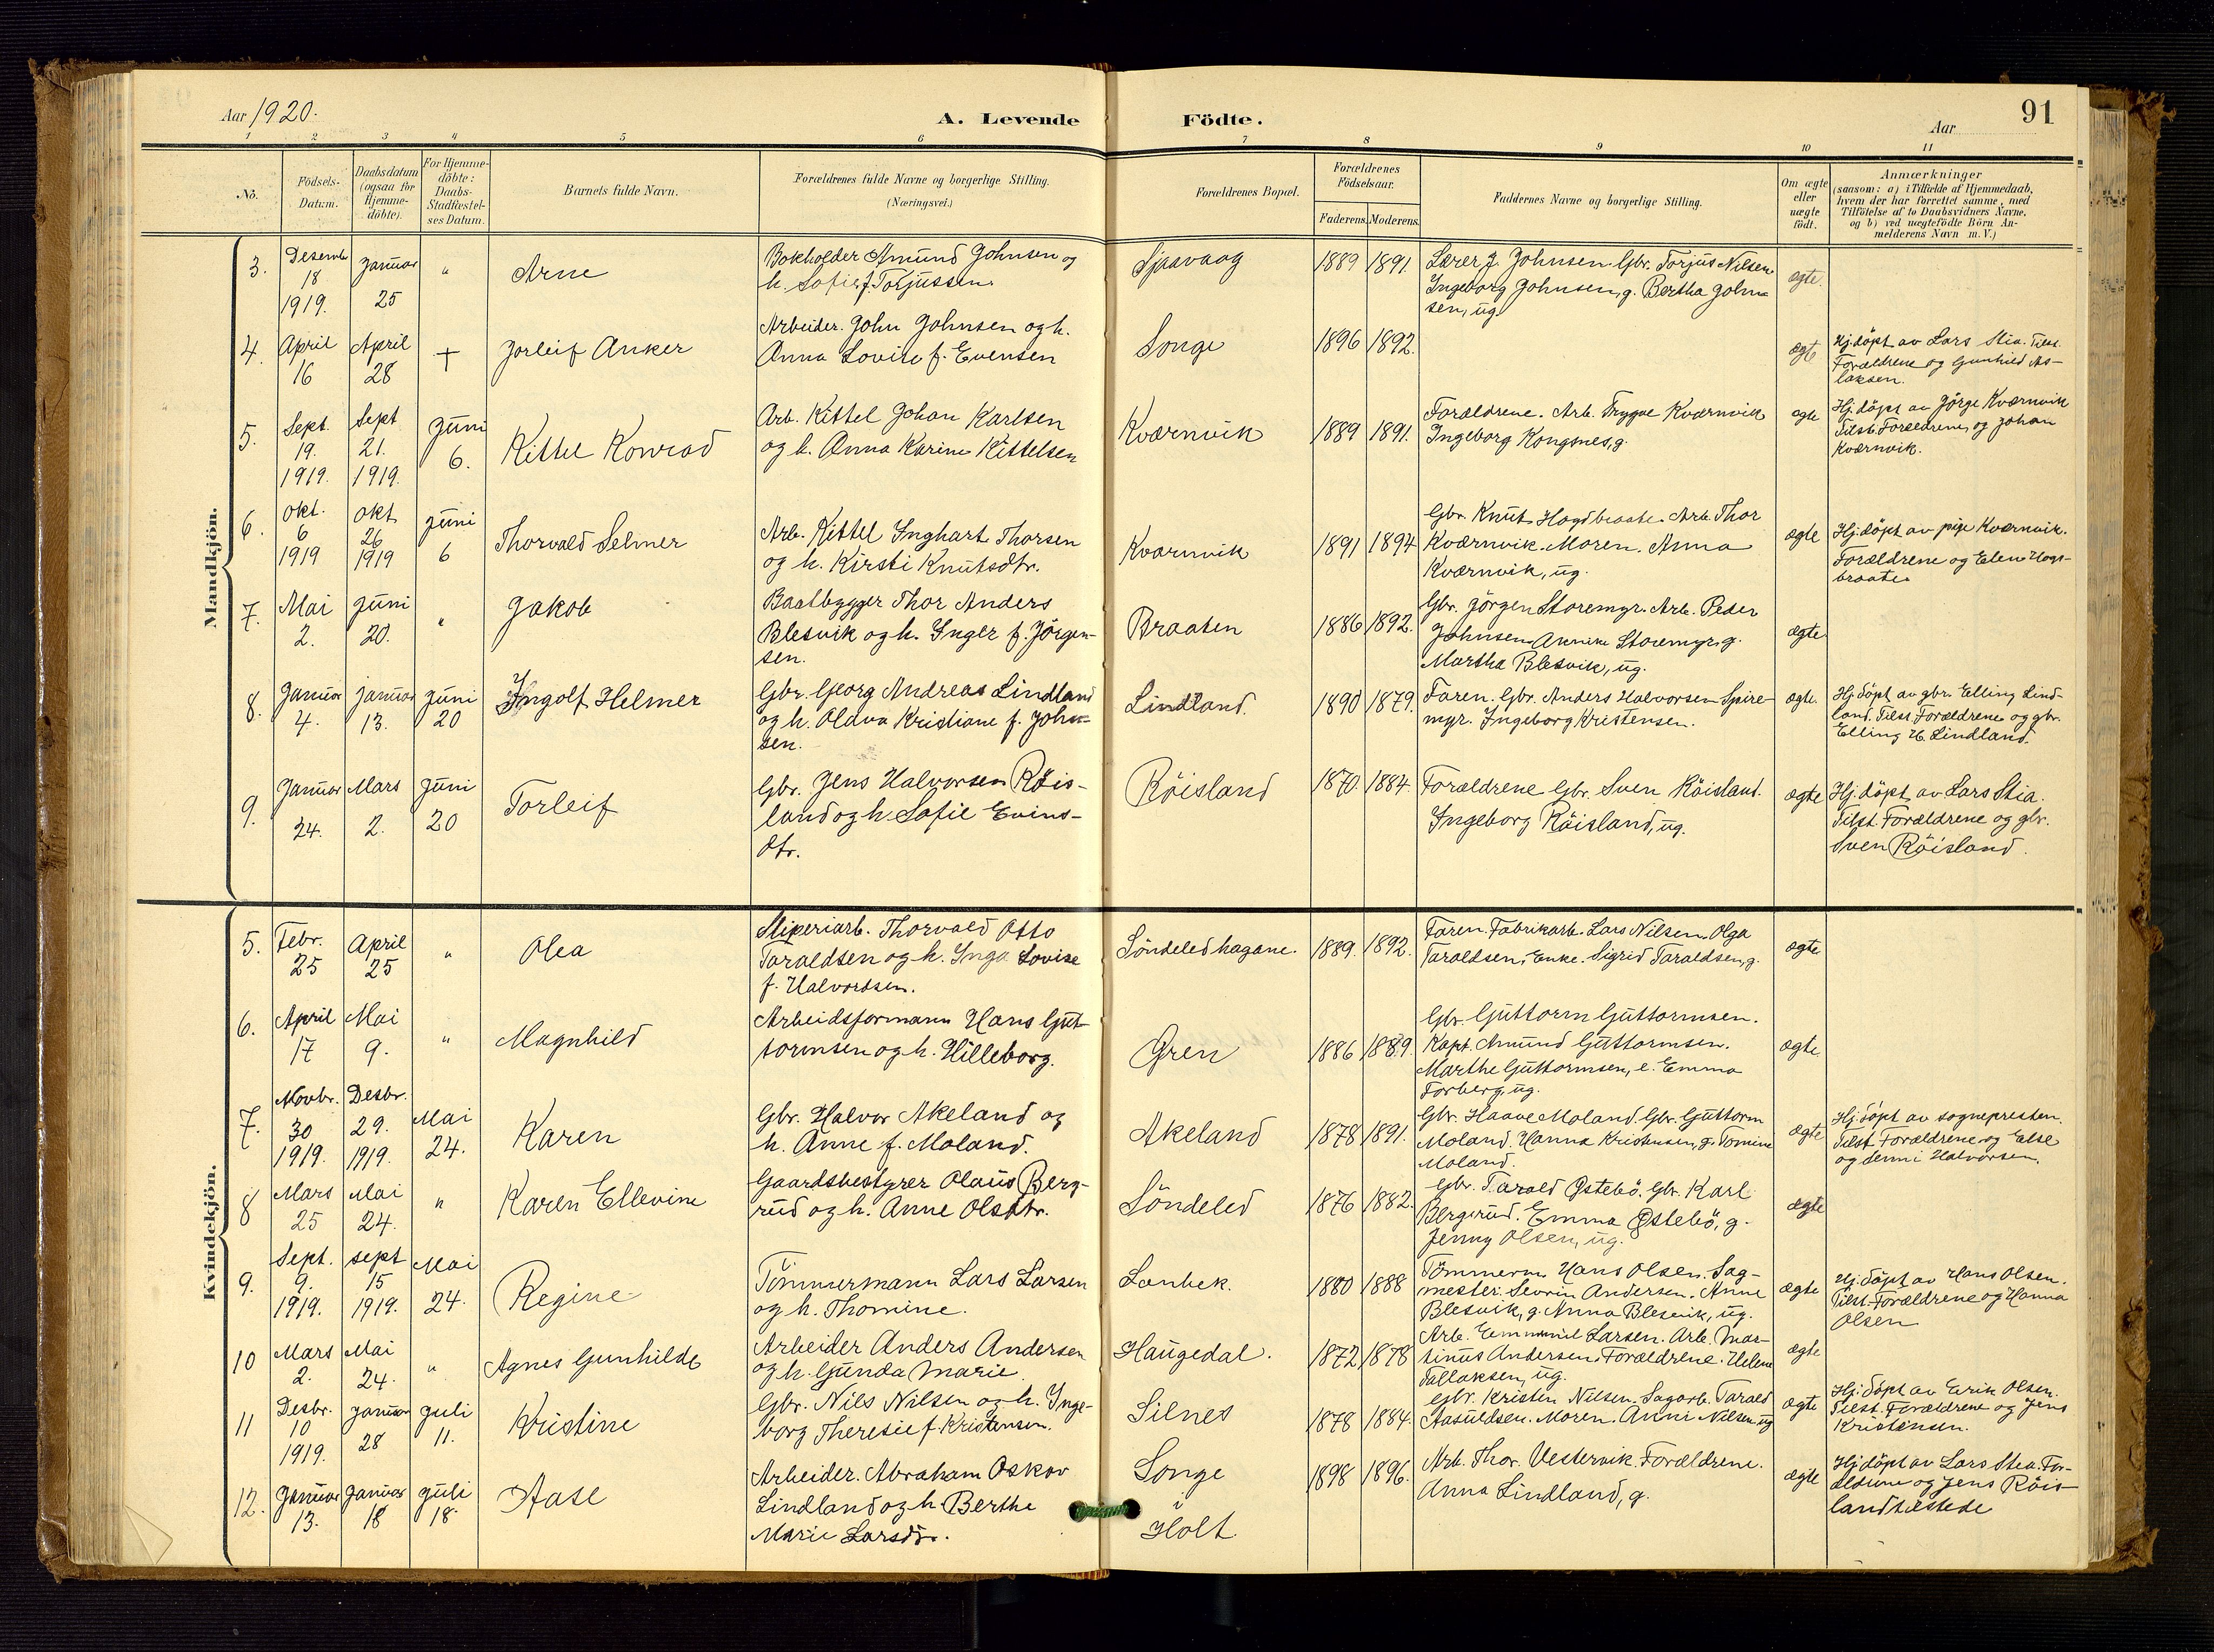 Aar 1920.
A. Levende Födte.
Aar
91
1 2 3 4 5 6 7 8 9 10 11
No.
Födsels-Datum.
Daabsdatum (ogsaa for Hjemme-döbte).
For Hjemme-döbte: Daabs-Stadfæstel-ses Datum.
Barnets fulde Navn.
Forældrenes fulde Navne og borgerlige Stilling. (Næringsvei.)
Forældrenes Bopæl.
Forældrenes Födselsaar.
Faderens. Moderens.
Faddernes Navne og borgerlige Stilling.
Om ægte eller uægte födt.
Anmærkninger
(saasom: a) i Tilfælde af Hjemmedaab,
hvem der har forrettet samme, med
Tilföielse af to Daabsvidners Navne,
og b) ved uægtefödte Börn An-
melderens Navn m. V.)
Mandkjön.
3. Desembr 18 1919. Januar 25 " Arne
Bokholder Amund Johnsen og
h. Sofie f. Torjussen.
Sjaavaag 1889 1891.
Lærer J. Johnsen. Gbr. Torjus Nilsen
Ingeborg Johnsen, g. Bertha John-
sen, ug.
ægte.
4. April 16 April 28 + Jorleif Anker
Arbeider. John Johnsen og h.
Anna Lovise f. Evensen
Songe 1896 1892.
ægte
Hj. döpt av Lars Stia. Tilst.
Forældrene og Gunhild As-
laksen.
5. Sept. 19. 1919. Sept 21. 1919. Juni 6. Kittel Konrad
Arb. Kittel Johan Karlsen
og h. Anna Karine Kittelsen
Kværnvik 1889 1891.
Forældrene. Arb. Trygve Kværnvik
Ingeborg Kongsnes, g.
ægte
Hj. döpt av Jörge Kværnvik
Tilst. Forældrene, og Johan
Kværnvik.
6. Okt. 6 1919 Okt 26 1919 Juni 6 Thorvald Selmer
Arb. Kittel Inghart Thorsen
og h. Kirsti Knutsdtr.
Kværnvik 1891 1894
Gbr. Knut Hogsbraate. Arb. Thor
Kværnvik. Moren. Anna
Kværnvik, ug.
ægte
Hj. döpt av pige Kværnvik.
Forældrene og Elen Hogs-
braate.
7. Mai 2. Juni 20. " Jakob
Baatbygger Thor Anders
Blesvik og h. Inger f. Jörgen-
sen.
Braaten 1886 1892.
Gbr. Jörgen Storemyr. Arb. Peder
Johnsen Annine Storemyr, g.
Martha Blesvik, ug.
ægte
8. Januar 4. Januar 13. Juni 20 Ingolf Helmer
Gbr. Georg Andreas Lindland
og h. Oldva Kristiane f. John-
sen.
Lindland. 1890 1879.
Faren. Gbr. Anders Halvorsen Spire-
myr. Ingeborg Kristensen.
ægte.
Hj. döpt av gbr. Elling Lind-
land. Tilst. Forældrene og gbr.
Elling H. Lindland.
9. Januar 24. Mars 2. Juni 20 Torleif
Gbr. Jens Halvorsen Röis-
land og h. Sofie Evins-
dtr.
Röisland 1870. 1884.
Forældrene Gbr. Sven Röisland.
Ingeborg Röisland, ug.
ægte
Hj. döpt av Lars Stia.
Tilst. Forældrene og gbr.
Sven Röisland.
Kvindekjön.
5. Febr. 25 April 25 " Olea
Sliperiarb. Thorvald Otto
Taraldsen og h. Inga Lovise
f. Halvordsen.
Söndeled hagane. 1889. 1892.
Faren. Fabrikarb. Lars Nilsen. Olga
Taraldsen, Enke. Sigrid Taraldsen, g.
ægte
6. April 17 Mai 9. " Magnhild
Arbeidsformann Hans Gut-
tormsen og h. Hilleborg.
Gren 1886 1889.
Gbr. Guttorm Guttormsen.
Kapt. Amund Guttormsen.
Marthe Guttormsen, e. Emma
Torberg, ug.
ægte
7. Novbr. 30 1919. Desbr. 29. 1919. Mai 24. Karen
Gbr. Halvor Akeland og
h. Anne f. Moland.
Akeland 1878 1891.
Gbr. Haave Moland. Gbr. Guttorm
Moland. Hanna Kristensen, g. Tomine
Moland.
ægte
Hj. döpt av sognepresten.
Tilst. Forældrene og Else
og Jenni Halvorsen.
8 Mars 25 Mai 24. " Karen Ellevine
Gaardsbestyrer Olaus Berg-
rud og h. Anne Olsdtr.
Söndeled 1876 1882.
Gbr. Tarald Østebö. Gbr. Karl
Bergsrud. Emma Østebö, g.
Jenny Olsen, ug.
ægte
9. Sept. 9. 1919. Sept 15 1919. Mai 24. Regine
Tömmermann Lars Larsen
og h. Thomine.
Lanbek. 1880 1888
Tömmerm. Hans Olsen. Sag-
mester. Severin Andersen. Anne
Blesvik, g. Anna Blesvik, ug.
ægte
Hj. döpt av Hans Olsen.
Tilst. Forældrene og Hanna
Olsen
10 Mars 2. Mai 24. " Agnes Gunhilde
Arbeider Anders Andersen
og h. Gunda Marie
Haugedal. 1872 1878
Arb. Emmanuel Larsen. Arb. Mar-
tinus Andersen Forældrene. Helene
Tallaksen, ug.
ægte
11 Desbr. 10 1919. Januar 28 Juli 11. Kristine
Gbr. Nils Nilsen og h. Inge-
borg Theresie f. Kristensen.
Silnes 1878 1884.
Gbr. Kristen Nilsen. Sagarb. Tarald
Aasuldsen. Moren. Anni Nilsen, ug
ægte
Hj. döpt av Erik Olsen.
Tilst. Forældrene og Jens
Kristensen.
12. Januar 13. Januar 18 Juli 18. Aase
Arbeider. Abraham Oskar
Lindland og h. Berthe
Marie Larsdtr.
Songe
i
Holt.
1898 1896.
Arb. Thor. Vestervik. Forældrene.
Anna Lindland, g.
ægte
Hj. döpt av Lars Stea. For-
ældrene og Jens Röis-
land tilstede